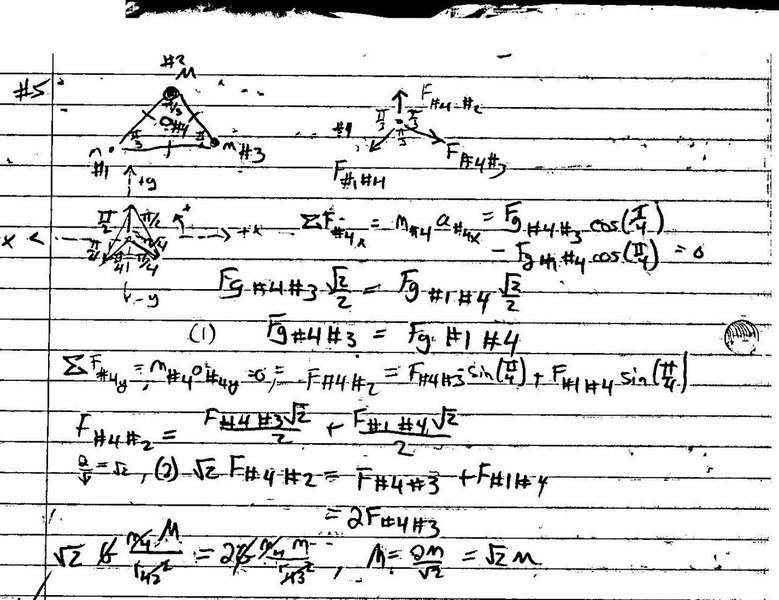 #5
#2
M
π/3
#4
π/3
m
#1
m #3
+y
F #4 #2
π/3
π/3
π/3
#4
F #1 #4
F #4 #3
π/2
π/2
+x
π/4
π/4
-y
ΣF #4x = m #4 a #4x = Fg #4 #3 cos(π/4)
- Fg #1 #4 cos(π/4) = 0
Fg #4 #3 √2/2 = Fg #1 #4 √2/2
(1) Fg #4 #3 = Fg #1 #4
ΣF #4y = m #4 a #4y = 0, = F #4 #2 = F #4 #3 sin(π/4) + F #1 #4 sin(π/4)
F #4 #2 = F #4 #3 √2/2 + F #1 #4 √2/2
= √2, (2) √2 F #4 #2 = F #4 #3 + F #1 #4
= 2F #4 #3
√2 G m4 M / r42² = 2G m4 m / r43², M = 2m/√2 = √2 m